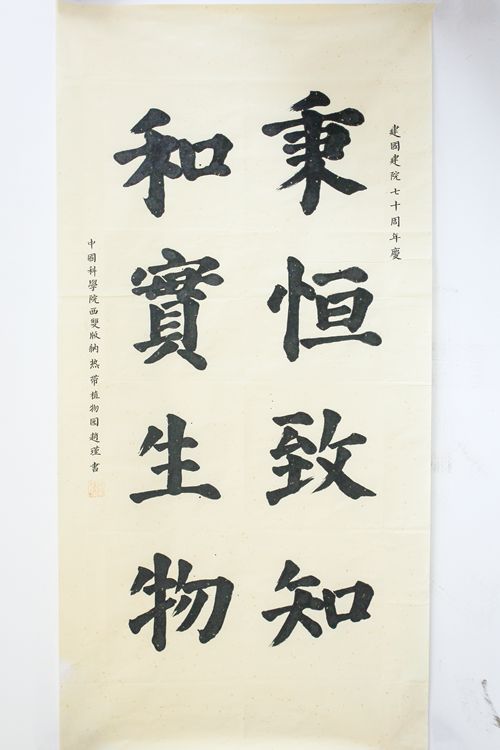 建國建院七十周年慶
秉恒致知
和實生物
中國科學院西雙版納熱带植物园趙瑾書